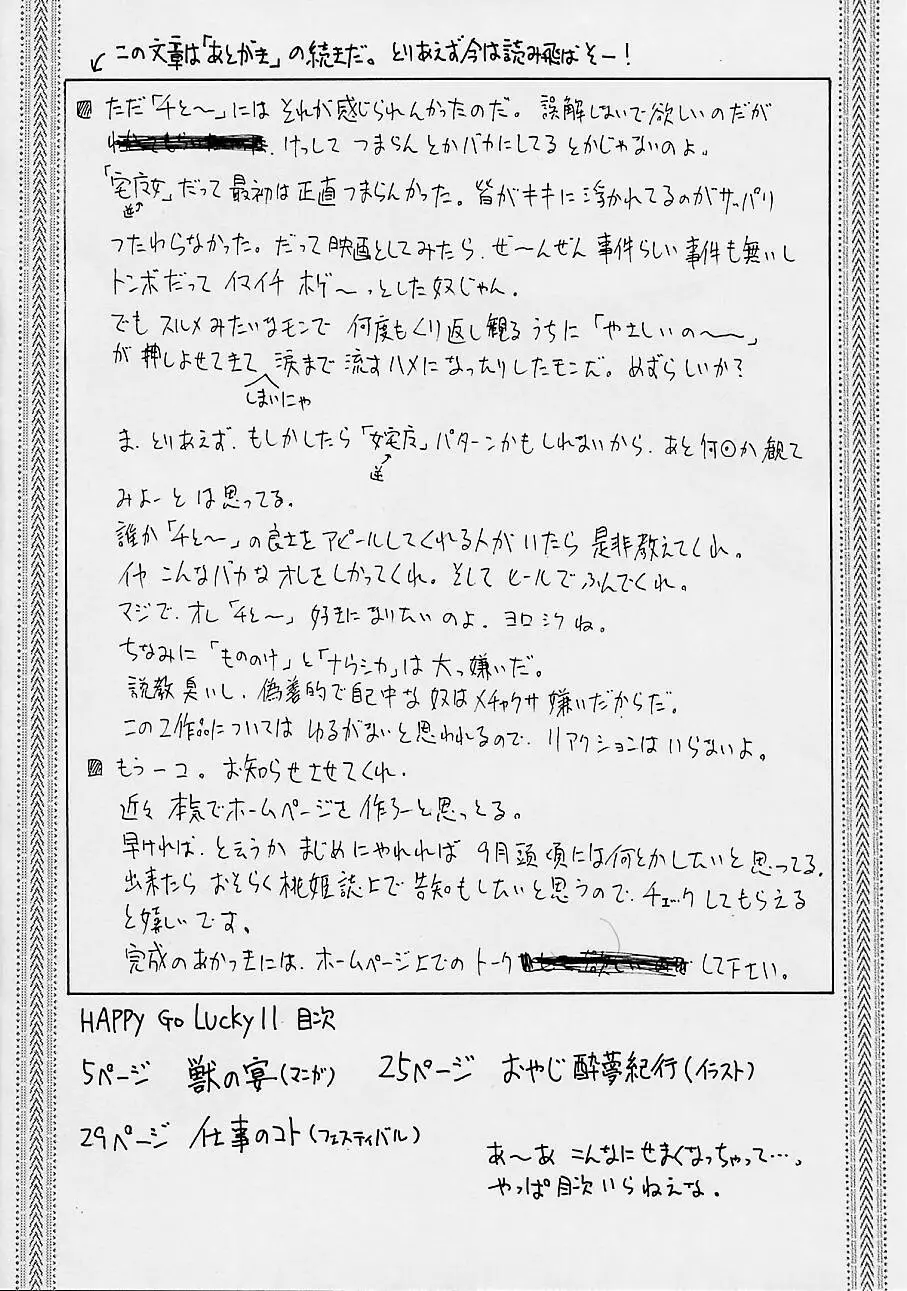 この文章は「あとがき」の続きだ。とりあえず今は読み飛ばそー!
ただ「千と〜」には それが感じられんかったのだ。誤解しないで欲しいのだが
けっして つまらんとかバカにしてるとかじゃないのよ。
「宅広女」だって最初は正直つまらんかった。皆がキキに浮かれてるのがサッパリ
逆
つたわらなかった。だって映画としてみたら、ぜ〜んぜん事件らしい事件も無いし
トンボだって イマイチ ホゲ〜っとした奴じゃん。
でも スルメみたいなモンで 何度もくり返し観るうちに「やさしいの〜〜」
が押しよせてきて 涙まで流すハメになったりしたモンだ。めずらしいか?
しまいにゃ
ま、とりあえず、もしかしたら「女宅広」パターンかもしれないから、あと何回か観て
逆
みよーとは思ってる。
誰か「千と〜」の良さをアピールしてくれる人がいたら 是非教えてくれ。
イヤ こんなバカなオレをしかってくれ。そして ヒールでふんでくれ。
マジで、オレ「千と〜」好きになりたいのよ。ヨロシクね。
ちなみに「もののけ」と「ナウシカ」は 大っ嫌いだ。
説教臭いし、偽善的で自己中な奴はメチャクサ嫌いだからだ。
この2作品については ゆるがないと思われるので、リアクションはいらないよ。
もう一コ。お知らせさせてくれ。
近々 本気でホームページを作ろーと思っとる。
早ければ、と云うか まじめにやれれば 9月頭頃には何とかしたいと思ってる。
出来たら おそらく桃姫誌上で告知もしたいと思うので、チェックしてもらえる
と嬉しいです。
完成のあかつきには、ホームページ上でのトーク して下さい。
HAPPY Go Lucky 11 目次
5ページ 獣の宴(マンガ) 25ページ おやじ酔夢紀行(イラスト)
29ページ 仕事のコト(フェスティバル)
あ〜あ こんなにせまくなっちゃって…。
やっぱ目次いらねえな。